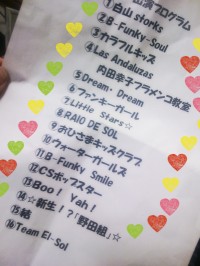 出演プログラム
①白山 storks
②B-Funky-Soul
③カラフルキッズ
④Las Andaluzas
内田幸子フラメンコ教室
⑤Dream・Dream
⑥ファンキーガール
⑦Little Stars☆
⑧RAIO DE SOL
⑨おひさまキッズクラブ
⑩ウォーターガールズ
⑪B-Funky Smile
⑫CSポップスター
⑬Boo! Yah!
⑭☆新生!?「野田組」☆
⑮結
⑯Team El-Sol